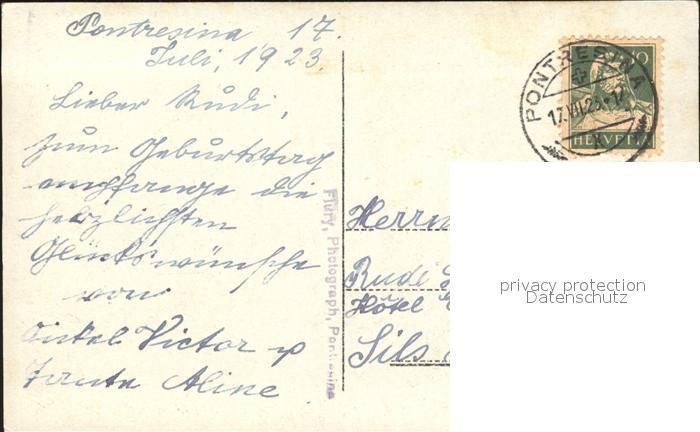 Pontresina 17.
Juli, 1923.
Lieber Rudi,
zum Geburtstag
empfange die
herzlichsten
Glückswünsche
von
Onkel Victor u
Tante Aline
Flury, Photograph, Pontresina
PONTRESINA
17.VII.23
10
HELVETIA
Herrn
Rudi
Hôtel
Sils
privacy protection
Datenschutz